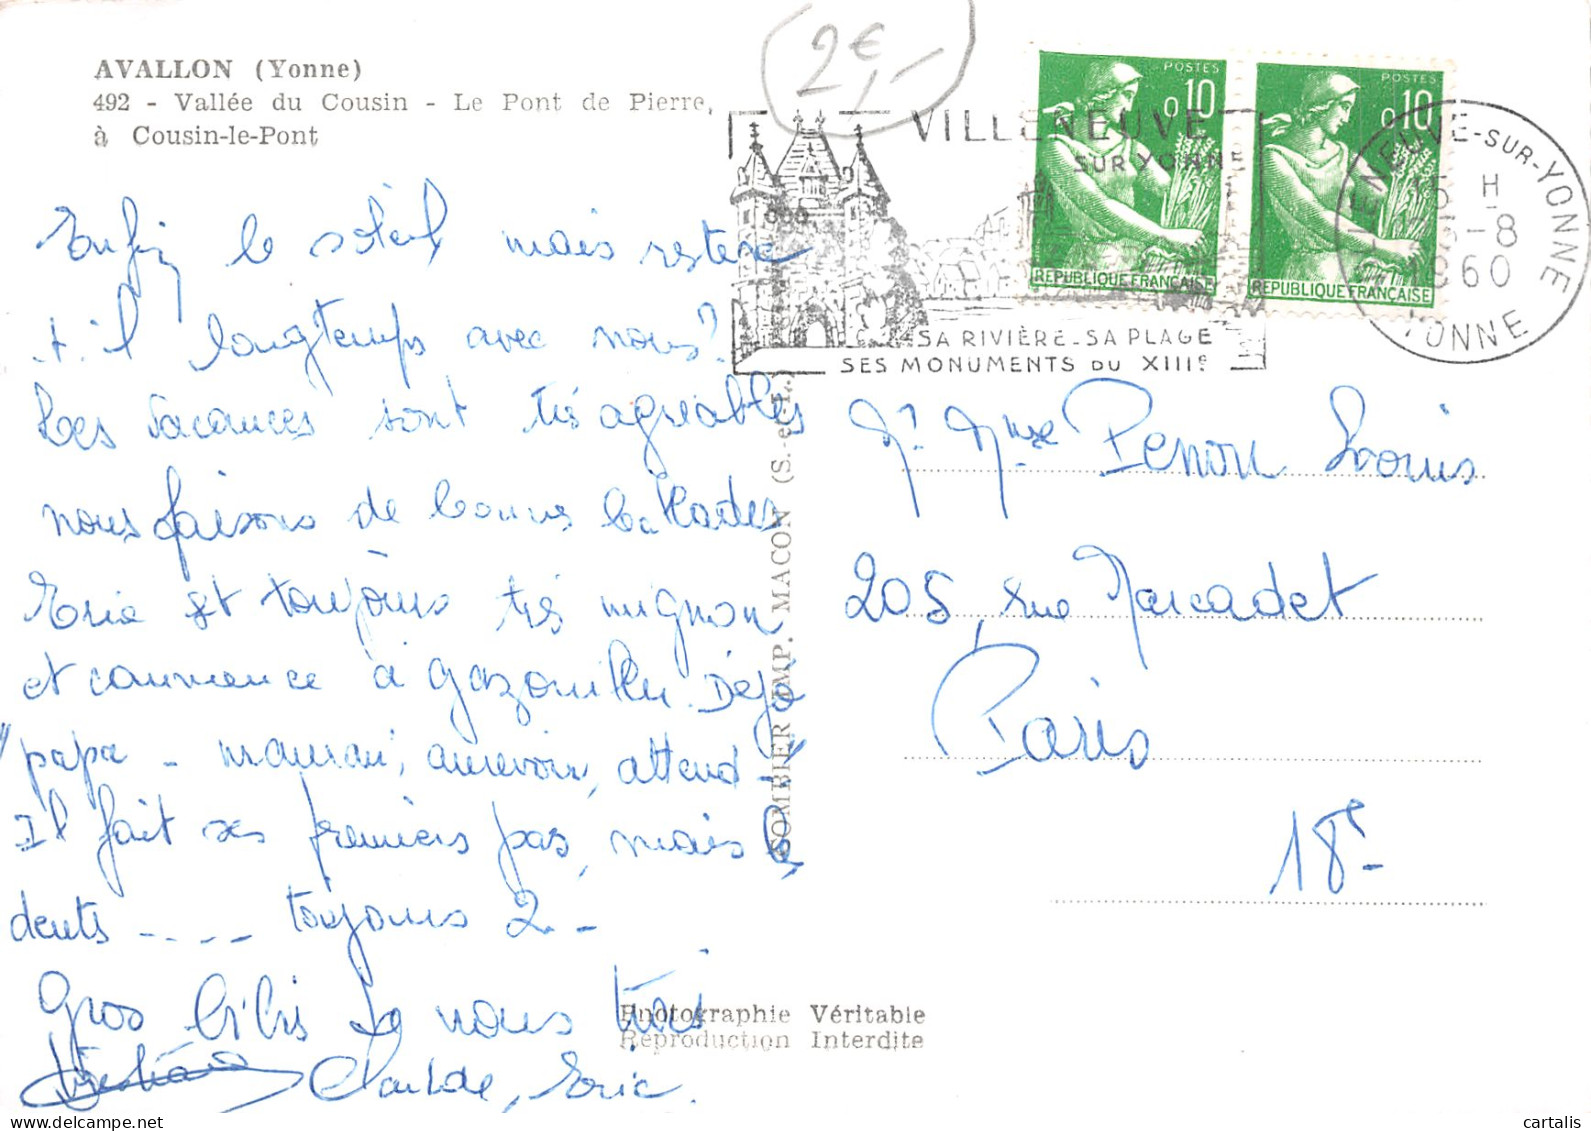 AVALLON (Yonne)
492 - Vallée du Cousin - Le Pont de Pierre,
à Cousin-le-Pont
2€,-
VILLENEUVE
SUR YONNE
SA RIVIÈRE - SA PLAGE
SES MONUMENTS DU XIIIe
POSTES
0,10
REPUBLIQUE FRANÇAISE
POSTES
0,10
REPUBLIQUE FRANÇAISE
VILLENEUVE-SUR-YONNE
15 H
-8
1960
YONNE
Enfin le soleil mais restera
t-il longtemps avec nous?
Les vacances sont très agréables
nous faisons de bonnes ballades
Eric est toujours très mignon
et commence à gazouiller. Déjà
"papa - maman, aurevoir, attend"
Il fait ses premiers pas, mais les
dents - - - - toujours 2. -
Gros bibis de nous trois
Claude, Eric.
COMBIER IMP. MACON (S.-et-L.)
Mr Mme Penon Louis
205, rue Marcadet
Paris
18e -
Photographie Véritable
Reproduction Interdite
www.delcampe.net
cartalis